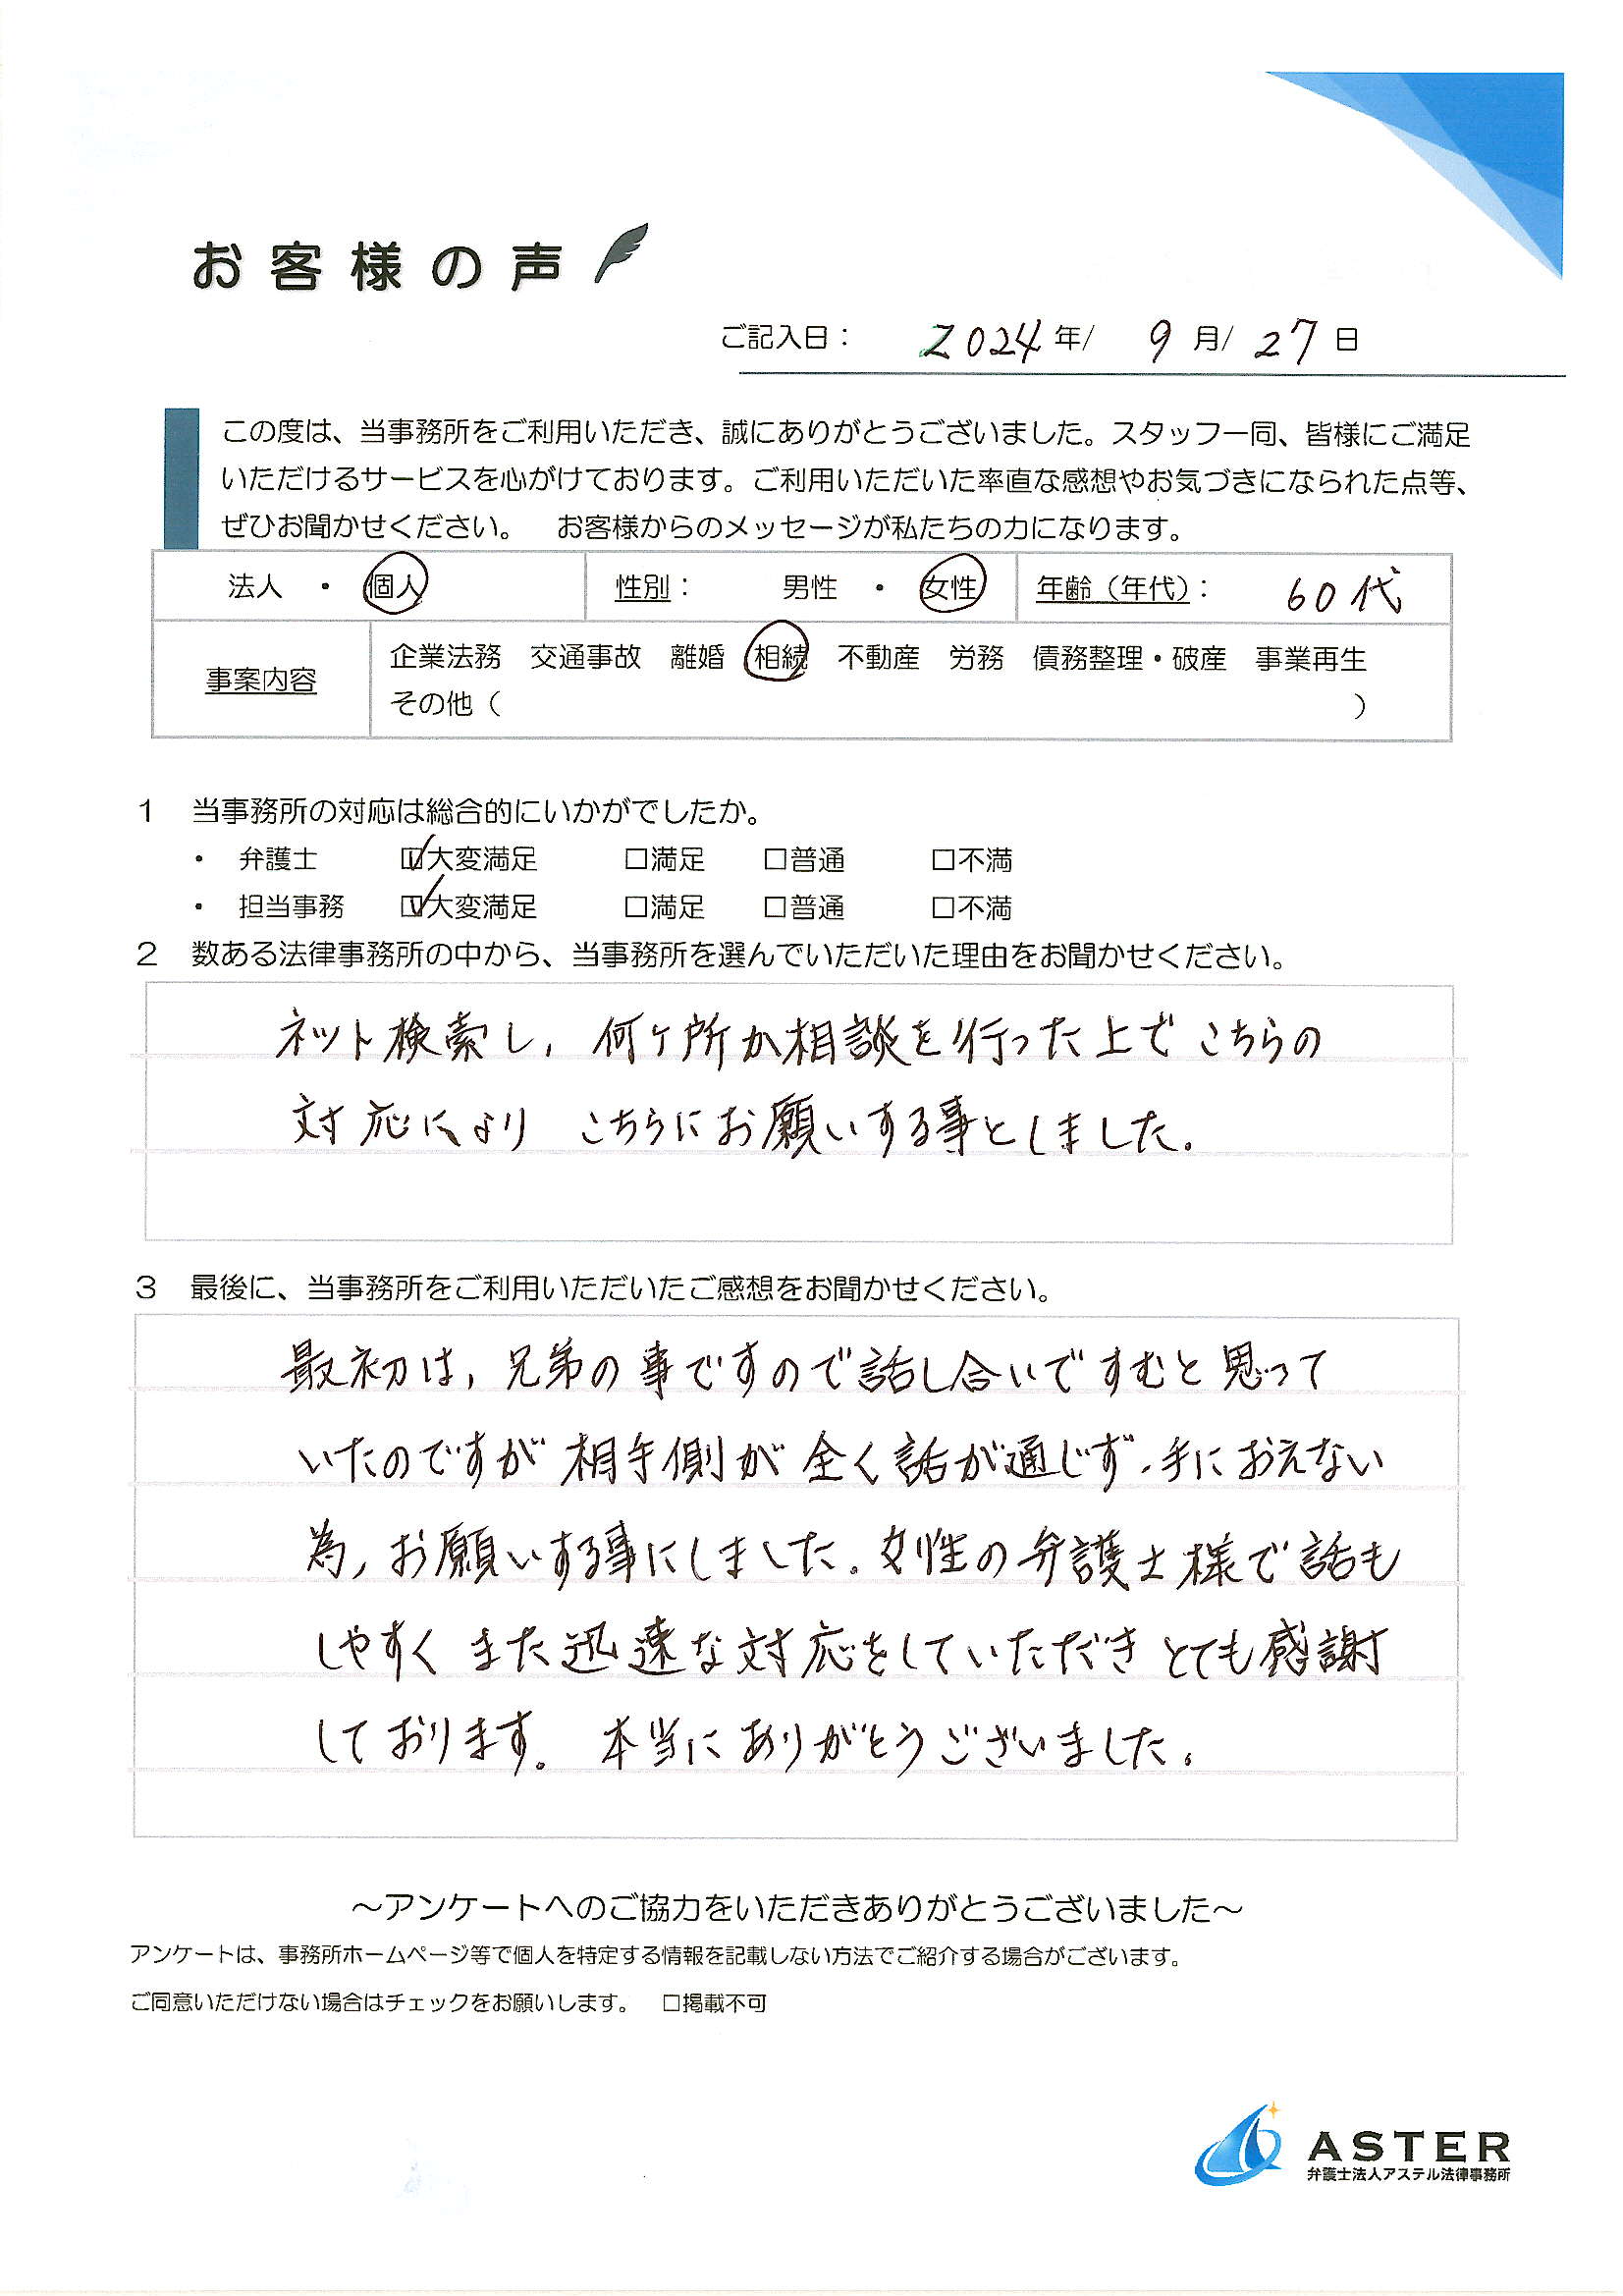 お客様の声
ご記入日： 2024年/ 9月/ 27日
この度は、当事務所をご利用いただき、誠にありがとうございました。スタッフ一同、皆様にご満足
いただけるサービスを心がけております。ご利用いただいた率直な感想やお気づきになられた点等、
ぜひお聞かせください。　お客様からのメッセージが私たちの力になります。
法人 ・ 個人 性別： 男性 ・ 女性 年齢（年代）： 60代
事案内容
企業法務 交通事故 離婚 相続 不動産 労務 債務整理・破産 事業再生
その他（ ）
1 当事務所の対応は総合的にいかがでしたか。
・ 弁護士 ☑大変満足 □満足 □普通 □不満
・ 担当事務 ☑大変満足 □満足 □普通 □不満
2 数ある法律事務所の中から、当事務所を選んでいただいた理由をお聞かせください。
ネット検索し、何ヶ所か相談を行った上でこちらの
対応により こちらにお願いする事としました。
3 最後に、当事務所をご利用いただいたご感想をお聞かせください。
最初は、兄弟の事ですので話し合いですむと思って
いたのですが相手側が全く話が通じず、手におえない
為、お願いする事にしました。女性の弁護士様で話も
しやすく また迅速な対応をしていただき とても感謝
しております。 本当にありがとうございました。
～アンケートへのご協力をいただきありがとうございました～
アンケートは、事務所ホームページ等で個人を特定する情報を記載しない方法でご紹介する場合がございます。
ご同意いただけない場合はチェックをお願いします。 □掲載不可
ASTER
弁護士法人アステル法律事務所